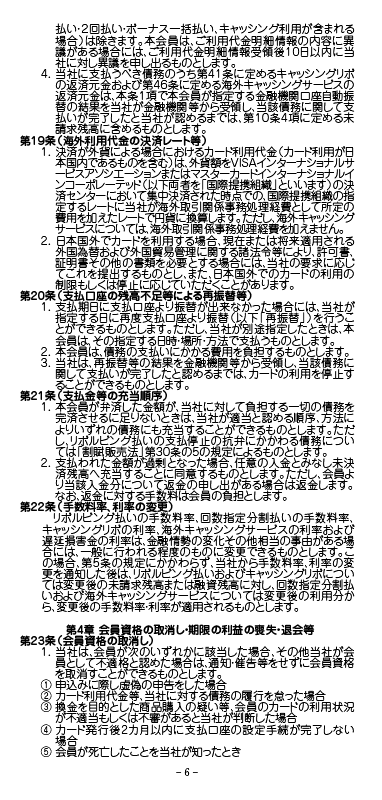 払い・2回払い・ボーナス一括払い、キャッシング利用が含まれる
場合）は除きます。本会員は、ご利用代金明細情報の内容に異
議がある場合には、ご利用代金明細情報受領後10日以内に当
社に対し異議を申し出るものとします。
4. 当社に支払うべき債務のうち第41条に定めるキャッシングリボ
の返済元金および第46条に定める海外キャッシングサービスの
返済元金は、本条1項で本会員が指定する金融機関口座自動振
替の結果を当社が金融機関等から受領し、当該債務に関して支
払いが完了したと当社が認めるまでは、第10条4項に定める未
請求残高に含めるものとします。
第19条（海外利用代金の決済レート等）
1. 決済が外貨による場合におけるカード利用代金（カード利用が日
本国内であるものを含む）は、外貨額をVISAインターナショナルサ
ービスアソシエーションまたはマスターカードインターナショナルイ
ンコーポレーテッド（以下両者を「国際提携組織」といいます）の決
済センターにおいて集中決済された時点での、国際提携組織の指
定するレートに当社が海外取引関係事務処理経費として所定の
費用を加えたレートで円貨に換算します。ただし、海外キャッシング
サービスについては、海外取引関係事務処理経費を加えません。
2. 日本国外でカードを利用する場合、現在または将来適用される
外国為替および外国貿易管理に関する諸法令等により、許可書、
証明書その他の書類を必要とする場合には、当社の要求に応じ
てこれを提出するものとし、また、日本国外でのカードの利用の
制限もしくは停止に応じていただくことがあります。
第20条（支払口座の残高不足等による再振替等）
1. 支払期日に支払口座より振替が出来なかった場合には、当社が
指定する日に再度支払口座より振替（以下「再振替」）を行うこ
とができるものとします。ただし、当社が別途指定したときは、本
会員は、その指定する日時・場所・方法で支払うものとします。
2. 本会員は、債務の支払いにかかる費用を負担するものとします。
3. 当社は、再振替等の結果を金融機関等から受領し、当該債務に
関して支払いが完了したと認めるまでは、カードの利用を停止す
ることができるものとします。
第21条（支払金等の充当順序）
1. 本会員が弁済した金額が、当社に対して負担する一切の債務を
完済させるに足りないときは、当社が適当と認める順序、方法に
よりいずれの債務にも充当することができるものとします。ただ
し、リボルビング払いの支払停止の抗弁にかかわる債務につい
ては「割賦販売法」第30条の5の規定によるものとします。
2. 支払われた金額が過剰となった場合、任意の入金とみなし未決
済残高へ充当することに同意するものとします。ただし、会員よ
り当該入金分について返金の申し出がある場合は返金します。
なお、返金に対する手数料は会員の負担とします。
第22条（手数料率、利率の変更）
リボルビング払いの手数料率、回数指定分割払いの手数料率、
キャッシングリボの利率、海外キャッシングサービスの利率および
遅延損害金の利率は、金融情勢の変化その他相当の事由がある場
合には、一般に行われる程度のものに変更できるものとします。こ
の場合、第5条の規定にかかわらず、当社から手数料率、利率の変
更を通知した後は、リボルビング払いおよびキャッシングリボについ
ては変更後の未請求残高または融資残高に対し、回数指定分割払
いおよび海外キャッシングサービスについては変更後の利用分か
ら、変更後の手数料率・利率が適用されるものとします。
第4章 会員資格の取消し・期限の利益の喪失・退会等
第23条（会員資格の取消し）
1. 当社は、会員が次のいずれかに該当した場合、その他当社が会
員として不適格と認めた場合は、通知・催告等をせずに会員資格
を取消すことができるものとします。
① 申込みに際し虚偽の申告をした場合
② カード利用代金等、当社に対する債務の履行を怠った場合
③ 換金を目的とした商品購入の疑い等、会員のカードの利用状況
が不適当もしくは不審があると当社が判断した場合
④ カード発行後2カ月以内に支払口座の設定手続が完了しない
場合
⑤ 会員が死亡したことを当社が知ったとき
－6－